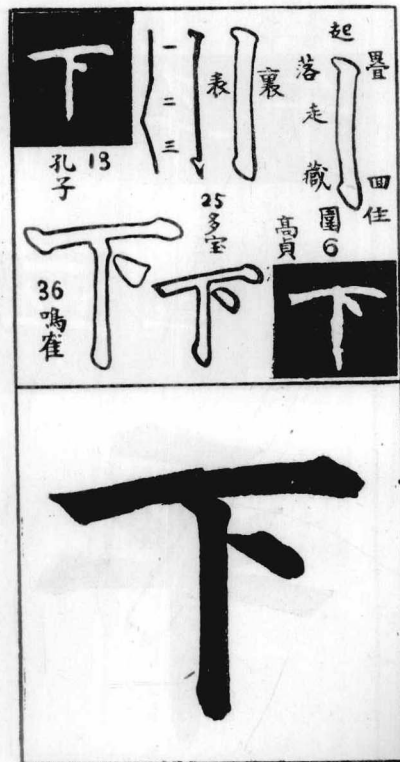 下
孔子 13
一
二
三
表
裏
起
落
走
藏
疊
回
住
圍
6
高貞
25
多宝
36
鳴隺
下
下
下
下